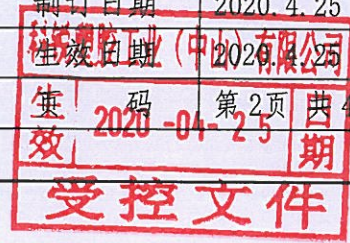 制订日期 2020.4.25
生效日期 2020.4.25
页 码 第2页 共4
塑胶工业(中山)有限公司
生效 2020-04-25 日期
受控文件